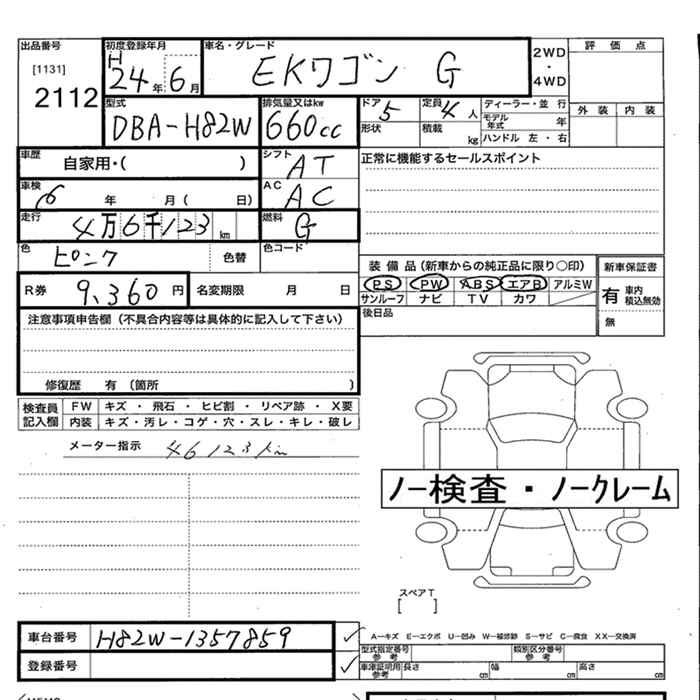 出品番号 初度登録年月 車名・グレード 2WD・4WD 評価点
[1131]
2112 H24年6月 EKワゴン G
型式 排気量又はkw ドア 定員 ディーラー・並行 外装 内装
DBA-H82W 660cc 5 4人 モデル年式 年
形状 積載 kg ハンドル 左・右
車歴 自家用・( ) シフト AT 正常に機能するセールスポイント
車検 6年 月( 日) AC AC
走行 4万6千123km 燃料 G
色 ピンク 色替 色コード
装備品(新車からの純正品に限り○印) 新車保証書
R券 9,360円 名変期限 月 日 PS PW ABS エアB アルミW 有 車内積込無効
サンルーフ ナビ TV カワ
注意事項申告欄(不具合内容等は具体的に記入して下さい) 後日品 無
修復歴 有(箇所 )
検査員記入欄 FW キズ・飛石・ヒビ割・リペア跡・X要
内装 キズ・汚レ・コゲ・穴・スレ・キレ・破レ
メーター指示 46123km
ノー検査・ノークレーム
スペアT
[ ]
車台番号 H82W-1357859 A-キズ E-エクボ U-凹み W-補修跡 S-サビ C-腐食 XX-交換済
型式指定番号 参考 類別区分番号 参考
登録番号 車庫証明用 参考 長さ cm 幅 cm 高さ cm